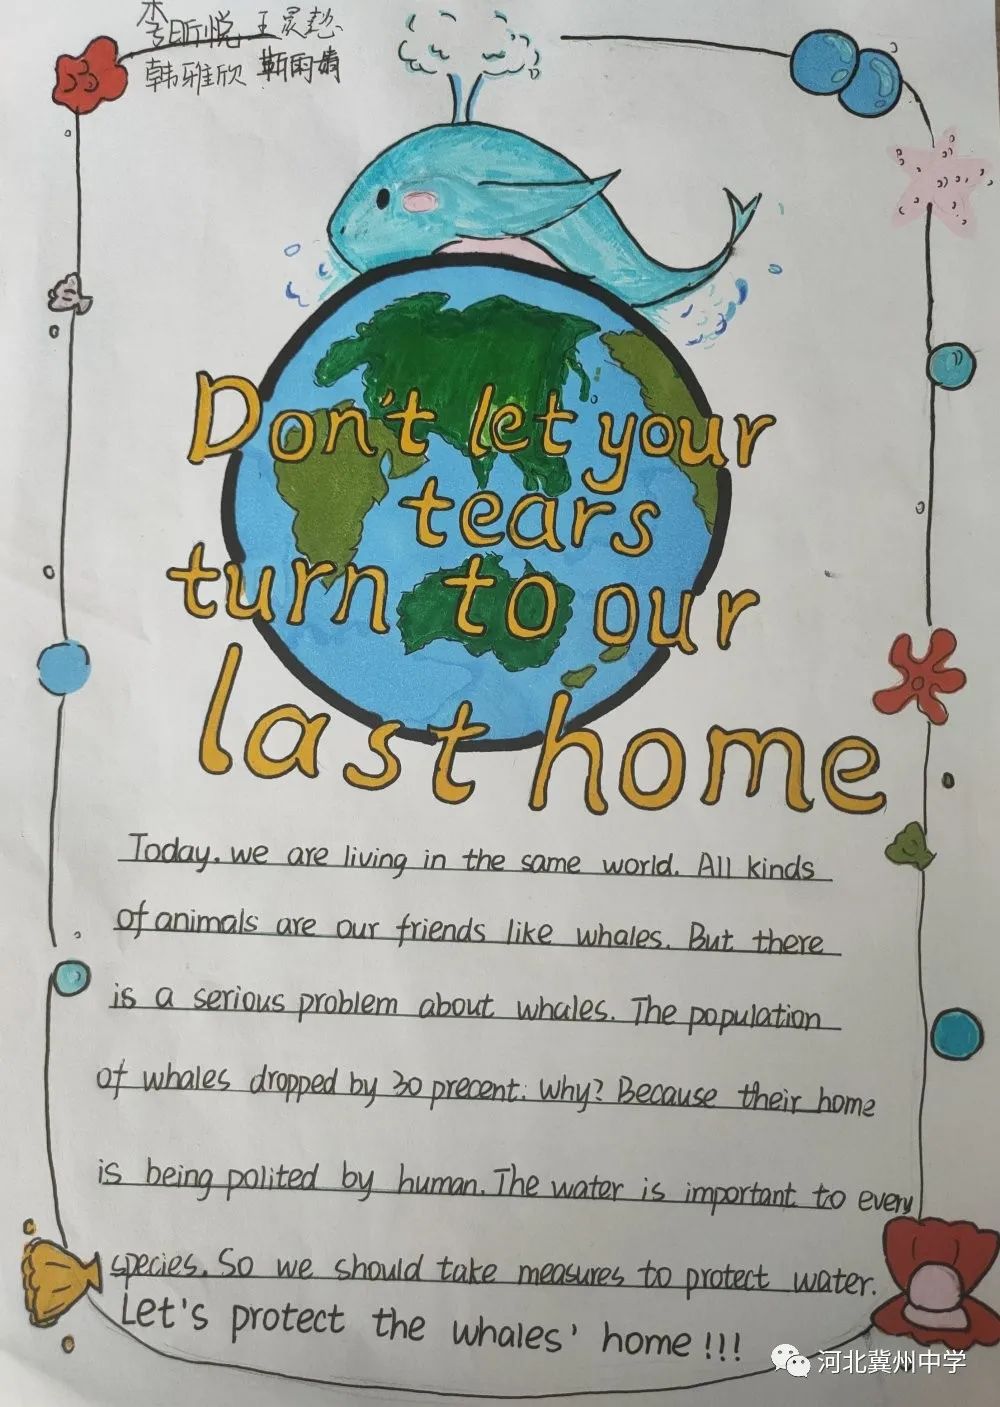 李昕悦 王灵懿
韩雅欣 靳雨
Don't let your
tears
turn to our
last home
Today. we are living in the same world. All kinds
of animals are our friends like whales. But there
is a serious problem about whales. The population
of whales dropped by 30 precent. Why? Because their home
is being polited by human. The water is important to every
species. So we should take measures to protect water.
Let's protect the whales' home!!!
河北冀州中学